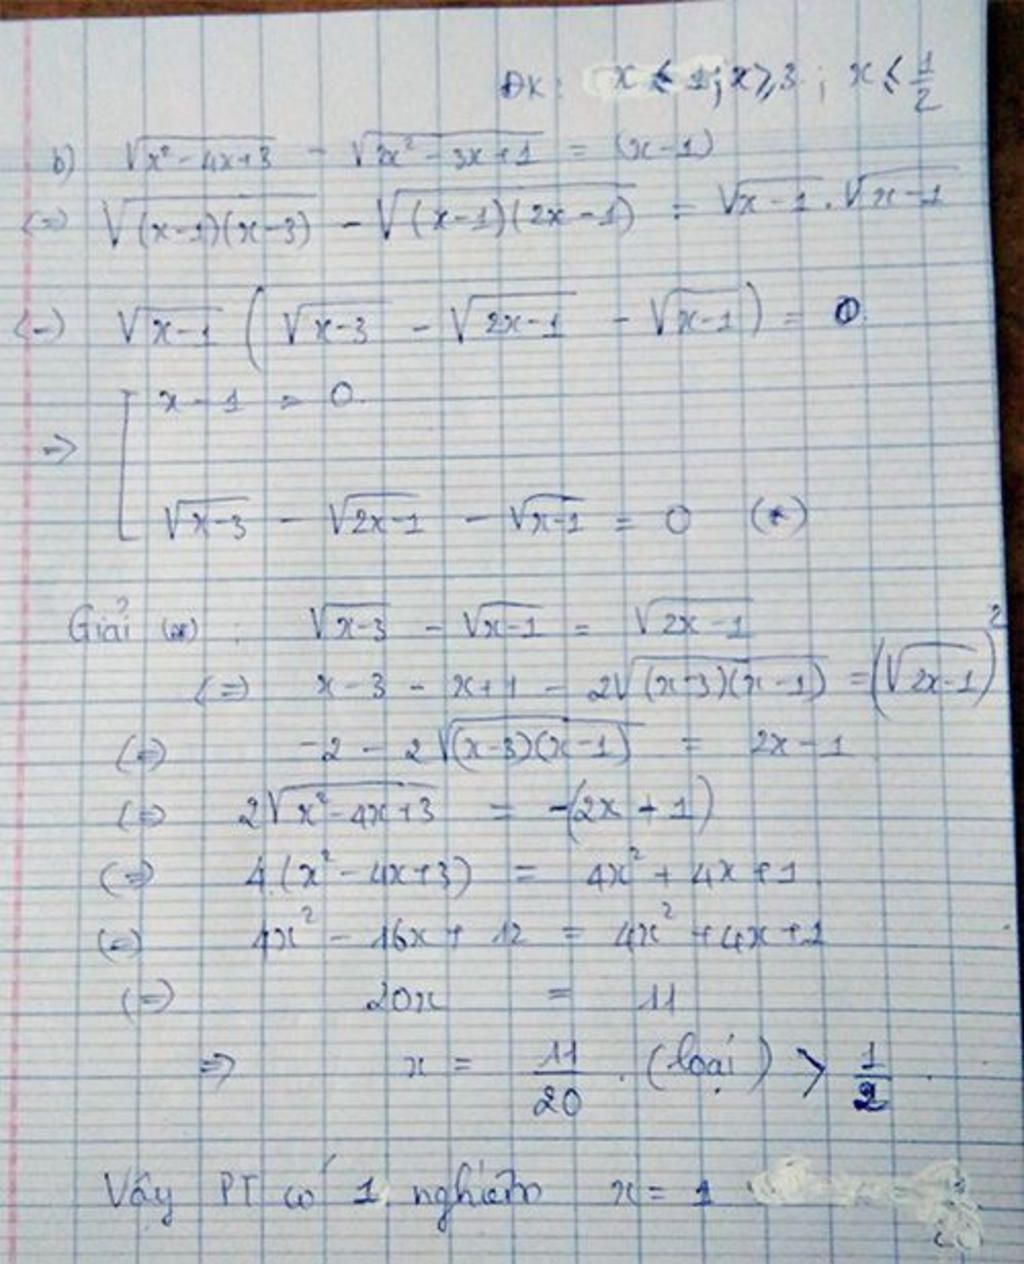 ĐK: x ≤ 1; x ≥ 3; x ≤ 1/2
b) √(x² - 4x+3) - √(2x² - 3x+1) = (x-1)
(=) √((x-1)(x-3)) - √((x-1)(2x-1)) = √(x-1) . √(x-1)
(=) √(x-1) (√(x-3) - √(2x-1) - √(x-1)) = 0.
=> [ x - 1 = 0.
√(x-3) - √(2x-1) - √(x-1) = 0 (*)
Giải (*). √(x-3) - √(x-1) = √(2x-1)
(=) x-3 - x+1 - 2√((x-3)(x-1)) = (√(2x-1))²
(=) -2 - 2√((x-3)(x-1)) = 2x-1
(=) 2√(x²-4x+3) = -(2x+1)
(=) 4.(x²-4x+3) = 4x²+4x+1
(=) 4x² - 16x + 12 = 4x²+4x+1
(=) 20x = 11
=> x = 11/20 . (loại) > 1/2 .
Vậy PT có 1 nghiệm x = 1